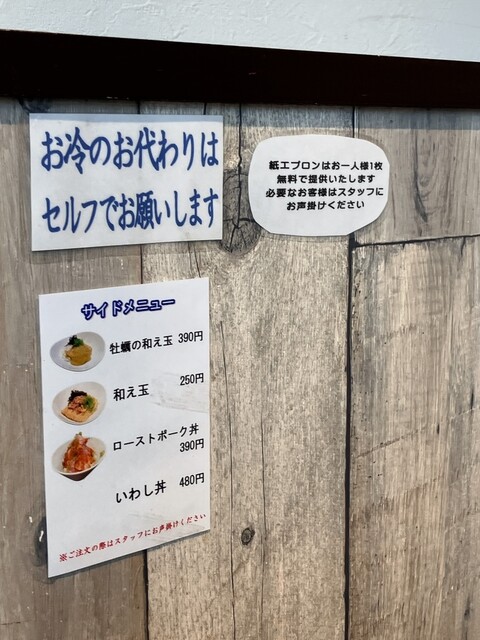 お冷のお代わりは
セルフでお願いします
紙エプロンはお一人様1枚
無料で提供いたします
必要なお客様はスタッフに
お声掛けください
サイドメニュー
牡蠣の和え玉 390円
和え玉 250円
ローストポーク丼
390円
いわし丼 480円
※ご注文の際はスタッフにお声掛けください